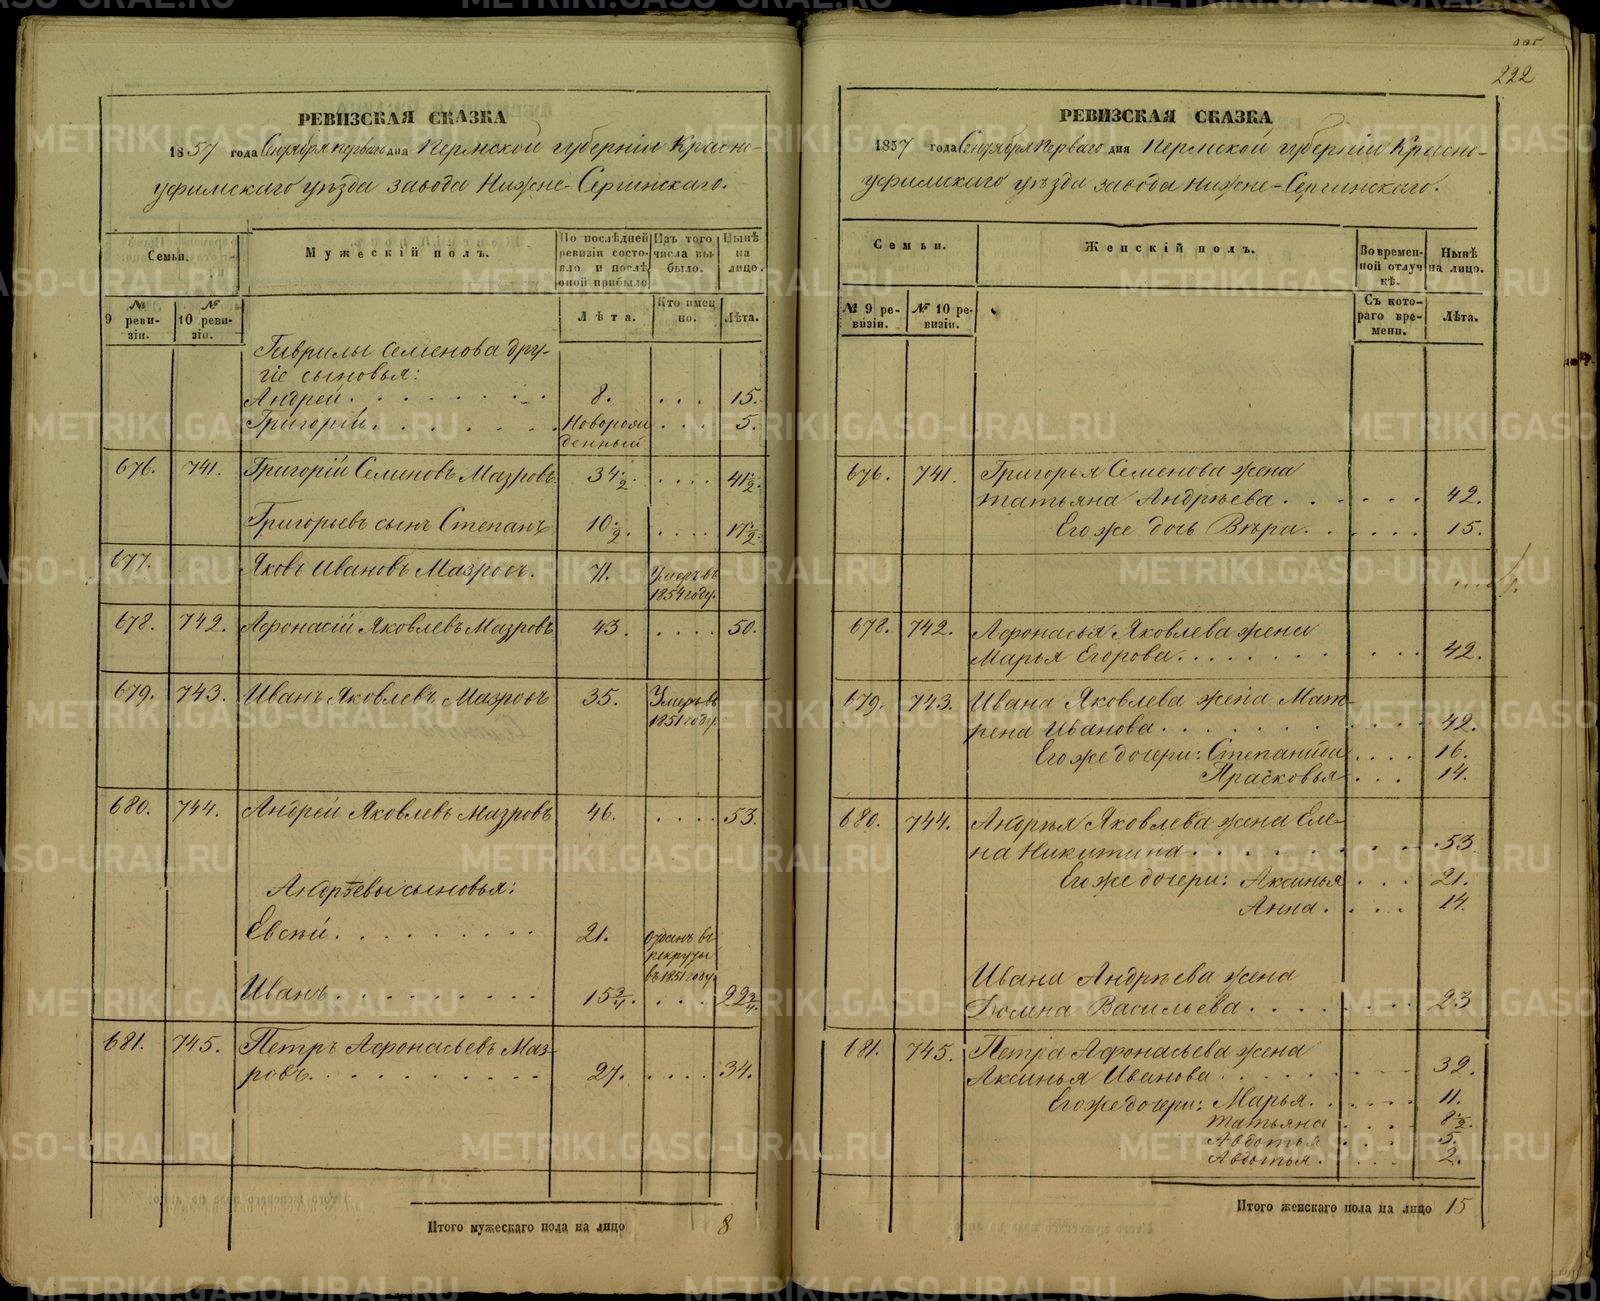 222
РЕВИЗСКАЯ СКАЗКА
1857 года Сентября перваго дня Пермской губерніи Красно-
уфимскаго уѣзда завода Нижне-Сергинскаго.
Семьи.
Мужескій полъ.
По послѣдней ревизіи состояло и послѣ оной прибыло
Изъ того числа выбыло.
Нынѣ на лицо.
№ 9 ревизіи.
№ 10 ревизіи.
Лѣта.
Кто именно.
Лѣта.
Гаврилы Семенова дру-
гіе сыновья:
Андрей . . . 8. . . . 15.
Григорій . . . Новорож
денный . . . 5.
676. 741. Григорій Семеновъ Мазровъ 34 1/2. . . . 41 1/2.
Григорьевъ сынъ Степанъ 10 1/2. . . . 17 1/2.
677. Яковъ Ивановъ Мазровъ. 71. Умеръ въ
1854 году.
678. 742. Афонасій Яковлевъ Мазровъ 43. . . . 50.
679. 743. Иванъ Яковлевъ Мазровъ 35. Умеръ въ
1851 году
680. 744. Андрей Яковлевъ Мазровъ 46. . . . 53.
Андрѣевы сыновья:
Евсѣй . . . 21. Отданъ въ
рекруты
въ 1851 году
Иванъ . . . 15 3/4. . . . 22 3/4.
681. 745. Петръ Афонасьевъ Маз-
ровъ . . . 27. . . . 34.
Итого мужескаго пола на лицо 8
РЕВИЗСКАЯ СКАЗКА
1857 года Сентября перваго дня Пермской губерніи Красно-
уфимскаго уѣзда завода Нижне-Сергинскаго.
Семьи.
Женскій полъ.
Во временной отлучкѣ.
Нынѣ на лицо.
№ 9 ревизіи.
№ 10 ревизіи.
Съ котораго времени.
Лѣта.
676. 741. Григорья Семенова жена
Татьяна Андрѣева . . . 42.
Его же дочь Вѣра . . . 15.
678. 742. Афонасья Яковлева жена
Марья Егорова . . . 42.
679. 743. Ивана Яковлева жена Мат-
рена Иванова . . . 42.
Его же дочери: Степанида . . . 16.
Прасковья . . . 14.
680. 744. Андрѣя Яковлева жена Еле-
на Никитина . . . 53.
Его же дочери: Аксинья . . . 21.
Анна . . . 14.
Ивана Андрѣева жена
Домна Васильева . . . 23
681. 745. Петра Афонасьева жена
Аксинья Иванова . . . 32.
Его же дочери: Марья . . . 11.
Татьяна . . . 8 1/2.
Авдотья . . . 5.
Авдотья . . . 2.
Итого женскаго пола на лицо 15
METRIKI.GASO-URAL.RU